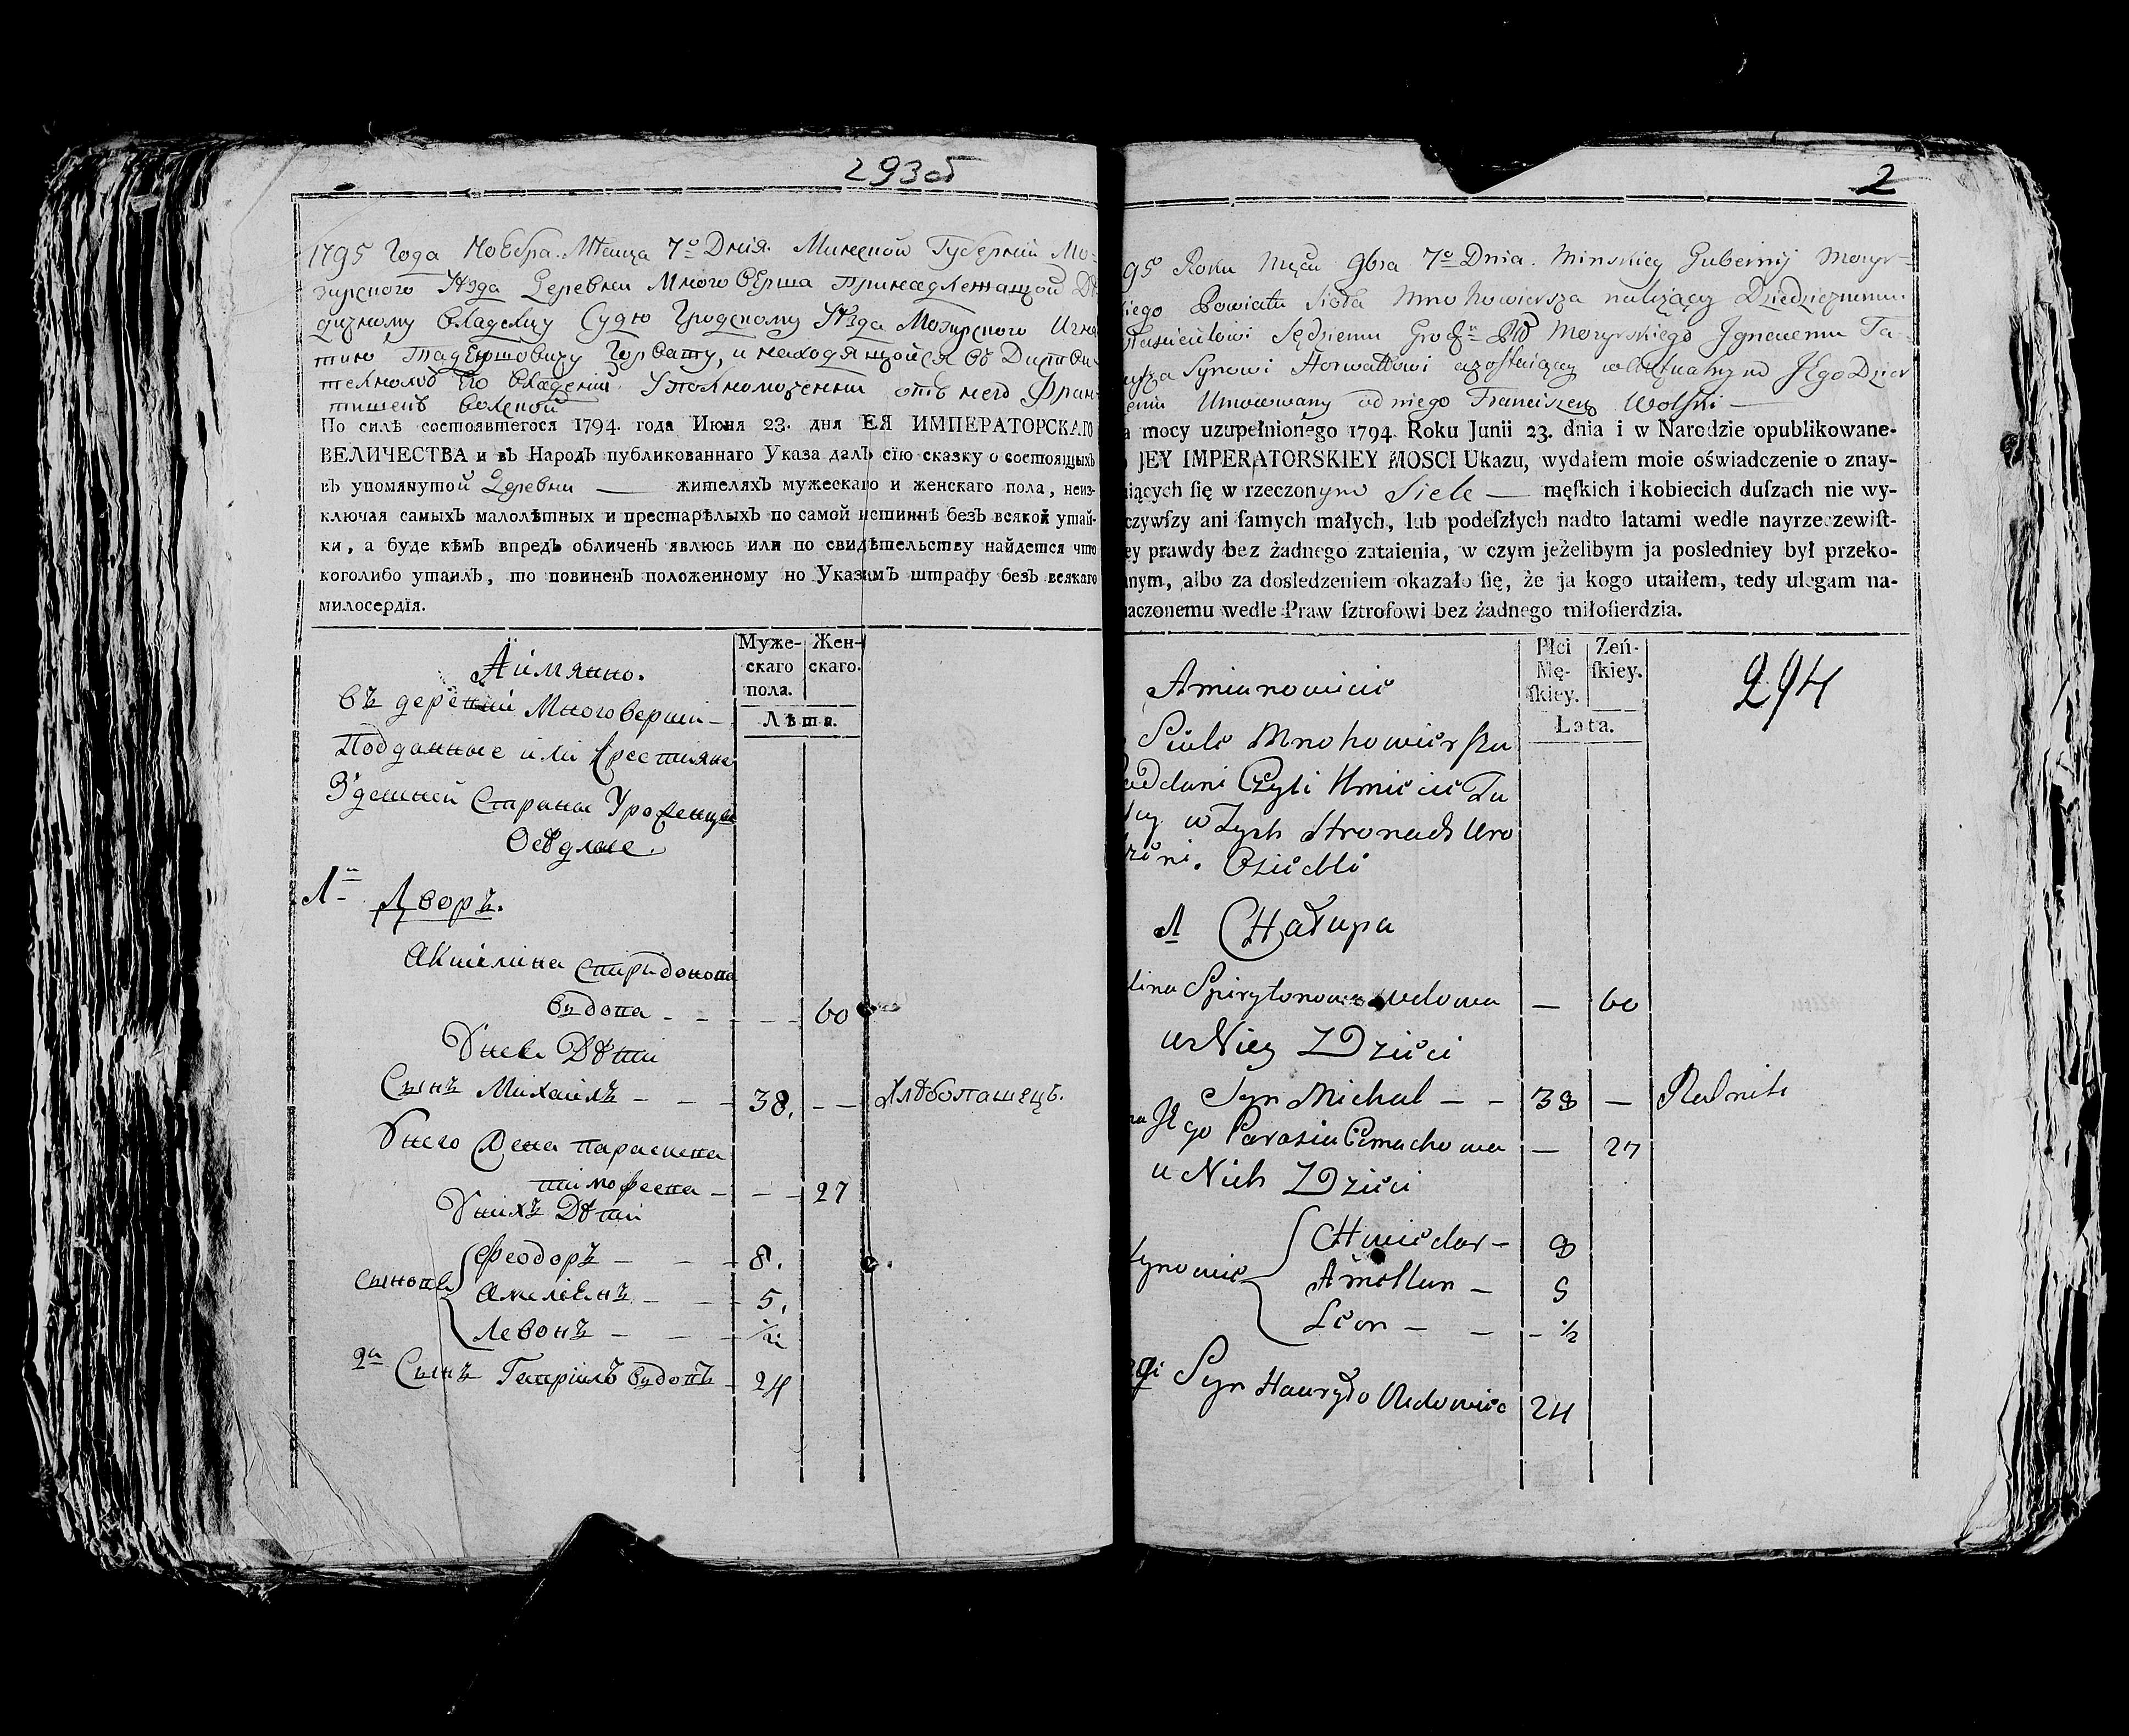 293об
1795 Года Ноебра Мѣсца 7º Дния. Минской Губерніи Мо-
зырского Уѣзда Деревни Многоверша Принадлежащой Дѣ
дизному Владельцу Судю Гродскому Уѣзда Мозырского Игна
тию Тадеушовичу Горвату, и находящойся въ Дипстви-
телномъ Его Владении Уполномоченни отъ него Фран-
тишекъ Волской
По силѣ состоявшегося 1794. года Июня 23. дня ЕЯ ИМПЕРАТОРСКАГО
ВЕЛИЧЕСТВА и въ Народъ публикованнаго Указа далъ сїю сказку о состоящыхъ
въ упомянутой Деревни — жителяхъ мужескаго и женскаго пола, неиз-
ключая самыхъ малолѣтныхъ и престарѣлыхъ по самой истиннѣ безъ всякой утай-
ки, а буде кѣмъ впредъ обличенъ явлюсь или по свидѣтельству найдется что
коголибо утаилъ, то повиненъ положенному по Указамъ штрафу безъ всякаго
милосердїя.
Муже-
скаго
пола.
Жен-
скаго.
Лѣта.
Аимянно.
въ деревни Многоверши —
Подданные или Крестияне
Здешней Страны Уроженцы
Оседлые.
1й Дворъ.
Акилина Спиридонова
вдова - - - - 60
У нее Дѣти
Сынъ Михаилъ - - - 38. - - Хлѣбопашецъ.
У него Жена Параскева
Тимофеева - - - 27
У нихъ Дѣти
Сынове
Феодоръ - - - 8.
Амелiенъ - - - 5.
Левонъ - - - 1/2
2й Сынъ Гавриилъ вдовъ - 24
2
95 Roku Mẹca 9bra 7º Dnia. Minskiey Gubernij Mozyr-
kiego Powiatu Sioła Mnohowiersza należący Dziedzicznemu
Sędziemu Mozyrskiego Ignacemu Ta-
usza Synowi Horwattowi Jego Dzier
eniu Umocowany od niego Franciszek Wolski —
a mocy uzupełnionego 1794. Roku Junii 23. dnia i w Narodzie opublikowane-
JEY IMPERATORSKIEY MOSCI Ukazu, wydałem moie oświadczenie o znay-
iących ſię w rzeczonym Siele — męſkich i kobiecich duſzach nie wy-
czywſzy ani ſamych małych, lub podeſzłych nadto latami wedle nayrzeczewiſt-
ey prawdy bez żadnego zataienia, w czym jeżelibym ja posledniey był przeko-
nym, albo za dosledzeniem okazało ſię, że ja kogo utaiłem, tedy ulegam na-
aczonemu wedle Praw ſztrofowi bez żadnego miłoſierdzia.
Płci
Mę-
ſkiey.
Zeń-
ſkiey.
Lata.
294
Amianowicie
Siele Mnohowierszu
oddani Czyli Kmiecie Tu
w Tych Stronach Uro
zeni. Osiedli
1 Chałupa
lina Spirytonowa wdowa — 60
u Niey z Dzieci
Syn Michał - - 38 — Rolnik
na Jego Parasia Cimachowa — 27
u Nich z Dzieci
synowie
Chwiedor - 8
Amellan - 5
Leon - - - 1/2
gi Syn Hawryło Wdowiec 24